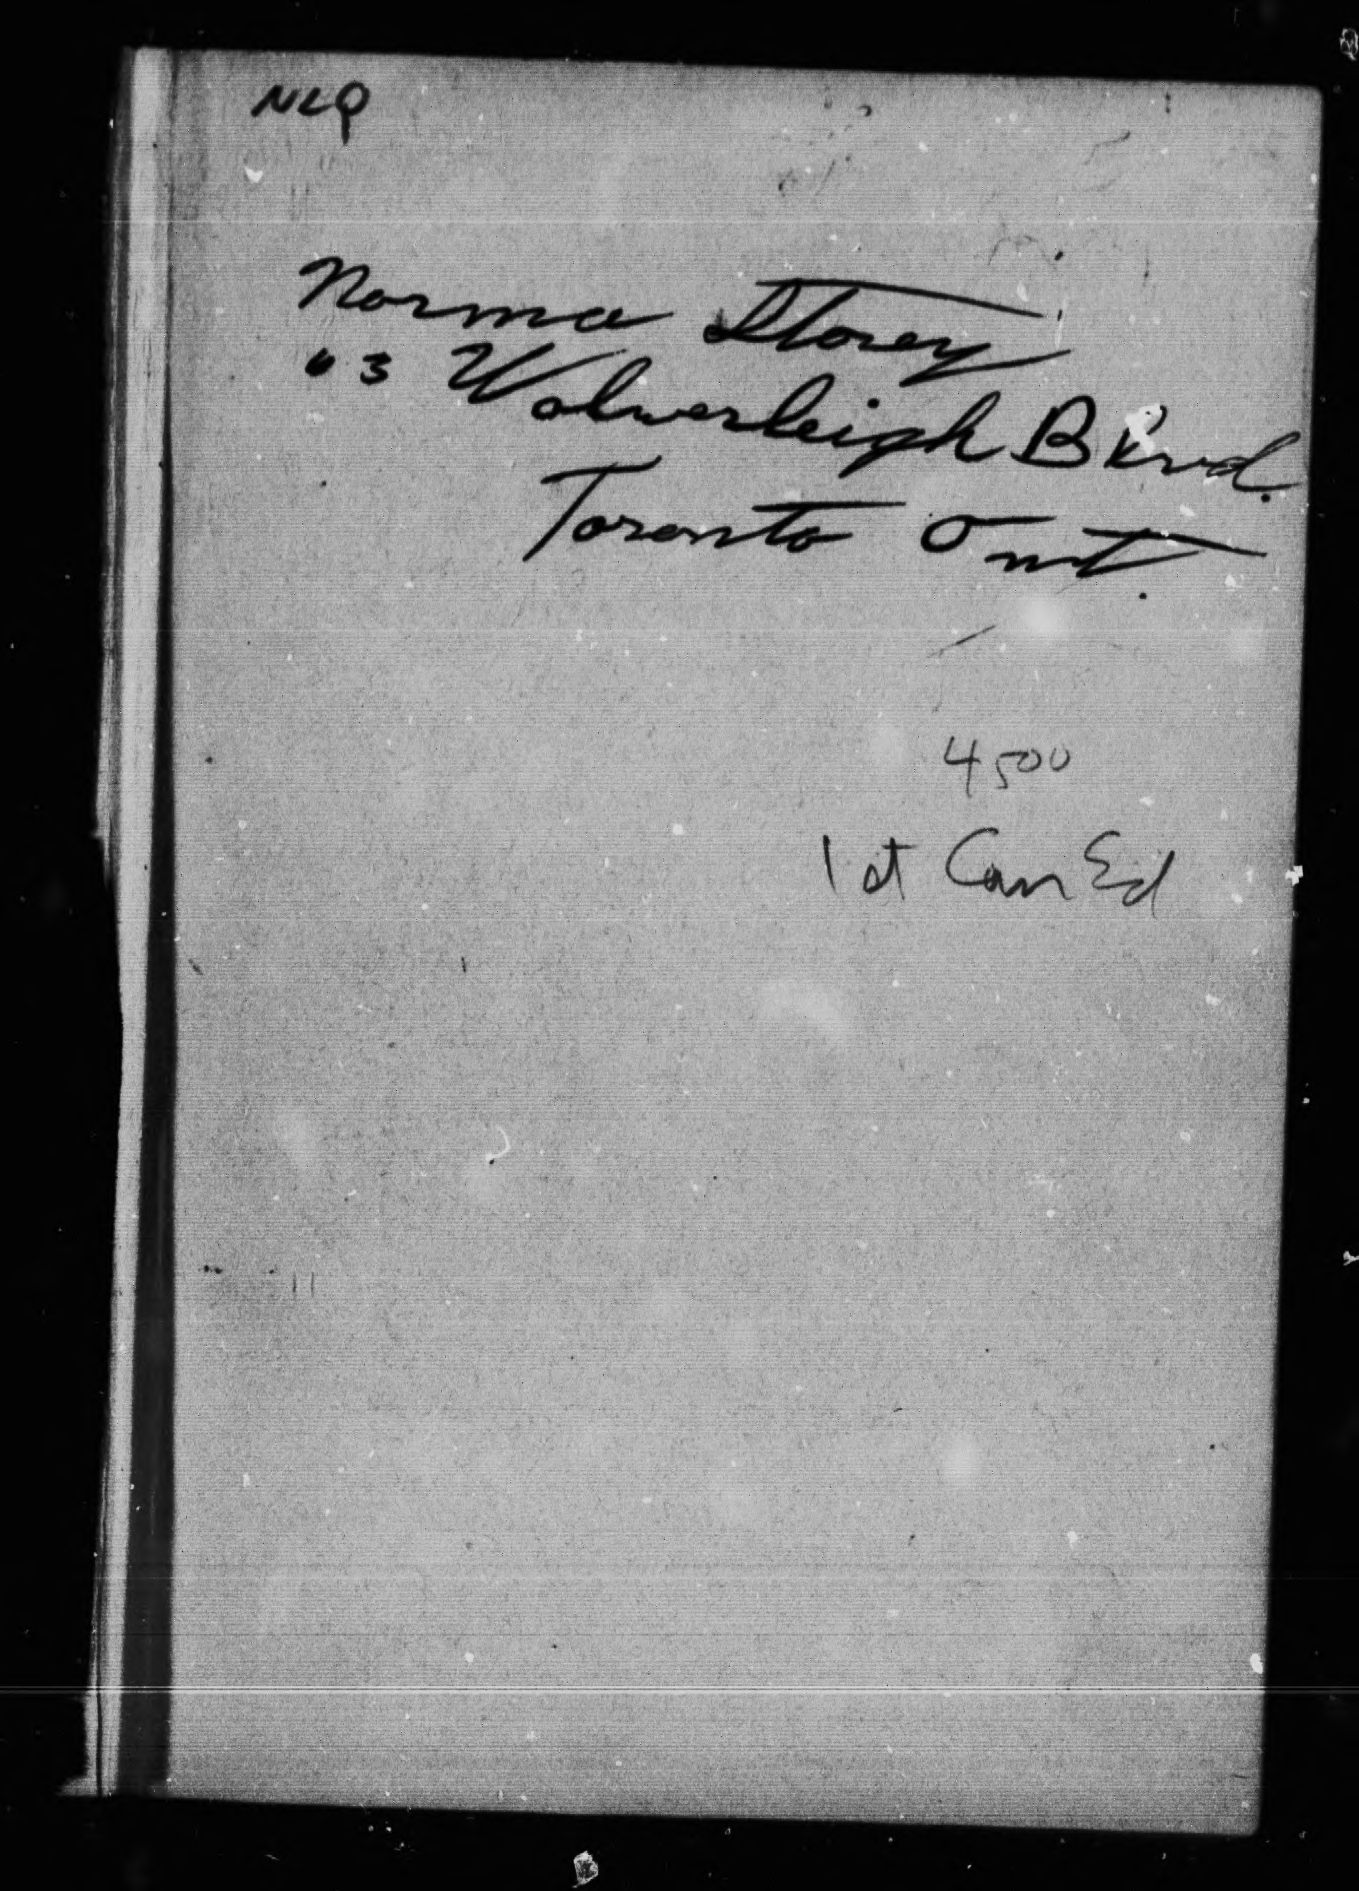 NLQ
Norma Storey
63 Wolverleigh Blvd.
Toronto Ont.
4500
1st Can Ed